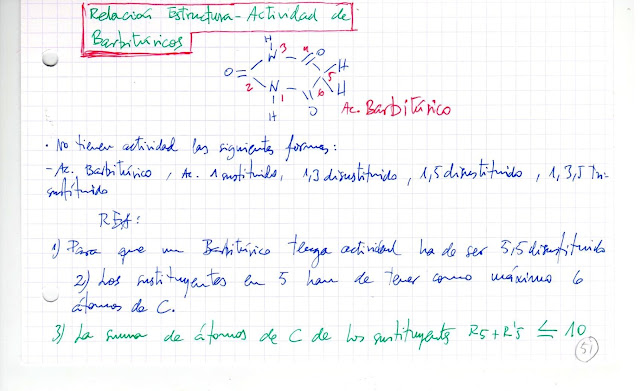 Relación Estructura-Actividad de
Barbitúricos
H
N 3 4 O
O= 5 H
2 N 6 H
1 O
H
Ac. Barbitúrico
· No tienen actividad las siguientes formas:
- Ac. Barbitúrico, Ac. 1 sustituido, 1,3 disustituido, 1,5 disustituido, 1,3,5 Tri-
sustituido
REA:
1) Para que un Barbitúrico tenga actividad ha de ser 5,5 disustituido
2) Los sustituyentes en 5 han de tener como máximo 6
átomos de C.
3) La suma de átomos de C de los sustituyentes R5 + R'5 ≤ 10
51